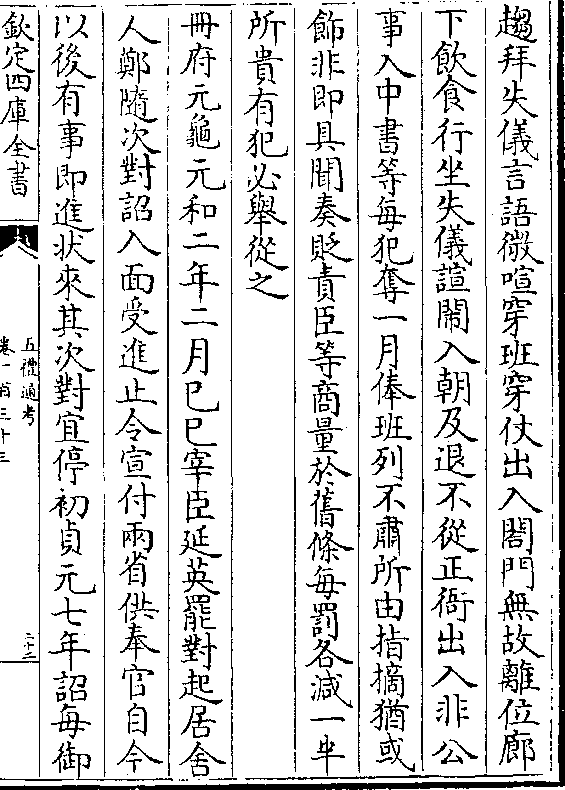 趨拜失儀言語微喧穿班穿仗出入閤門無故離位廊
下飲食行坐失儀諠鬧入朝及退不從正衙出入非公
事入中書等每犯奪一月俸班列不肅所由指摘猶或
飾非即具聞奏貶責臣等商量於舊條每罰各減一半
所貴有犯必舉從之
冊府元龜元和二年二月己巳宰臣延英罷對起居舍
人鄭隨次對詔入面受進止令宣付兩省供奉官自今
以後有事即進狀來其次對宜停初貞元七年詔每御
欽定四庫全書
五禮通考
卷一百三十三
三十三